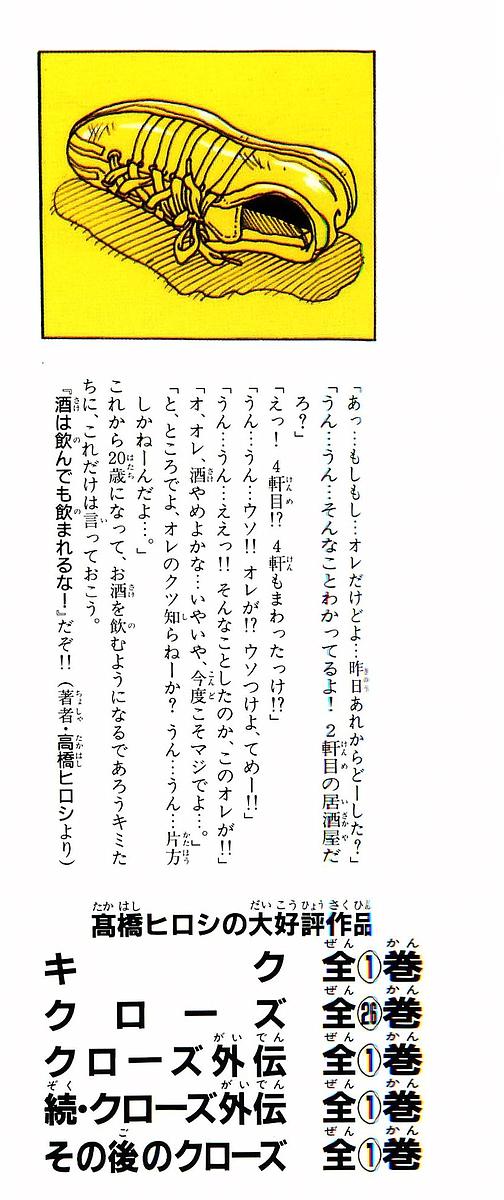 「あっ…もしもし…オレだけどよ…昨日あれからどーした?」
「うん…うん…そんなことわかってるよ! 2軒目の居酒屋だ
ろ?」
「えっ! 4軒目!? 4軒もまわったっけ!?」
「うん…うん…ウソ!! オレが!? ウソつけよ、てめー!!」
「うん…うん…ええっ!! そんなことしたのか、このオレが!!」
「オ、オレ、酒やめよかな…いやいや、今度こそマジでよ…。」
「と、ところでよ、オレのクツ知らねーか? うん…うん…片方
しかねーんだよ…。」
これから20歳になって、お酒を飲むようになるであろうキミた
ちに、これだけは言っておこう。
『酒は飲んでも飲まれるな!』だぞ!!(著者・高橋ヒロシより)
髙橋ヒロシの大好評作品
キク 全①巻
クローズ 全㉖巻
クローズ外伝 全①巻
続・クローズ外伝 全①巻
その後のクローズ 全①巻